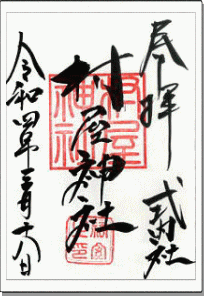 奉拝 式内社
村屋神社
令和四年三月十八日
村屋神社